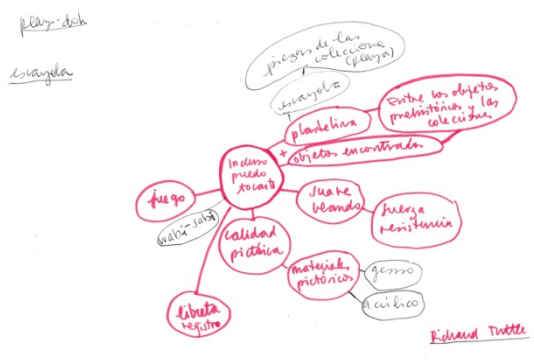 play-doh
escayola
piezas de las
colecciones
(playa)
escayola
plastelina
Entre los objetos
prehistóricos y las
colecciones
+
objetos encontrados
Incluso
puedo
tocarte
juego
wabi-sabi
suave
blando
fuerza
resistencia
calidad
pictórica
materiales
pictóricos
gesso
acrílico
libreta
registro
Richard Tuttle